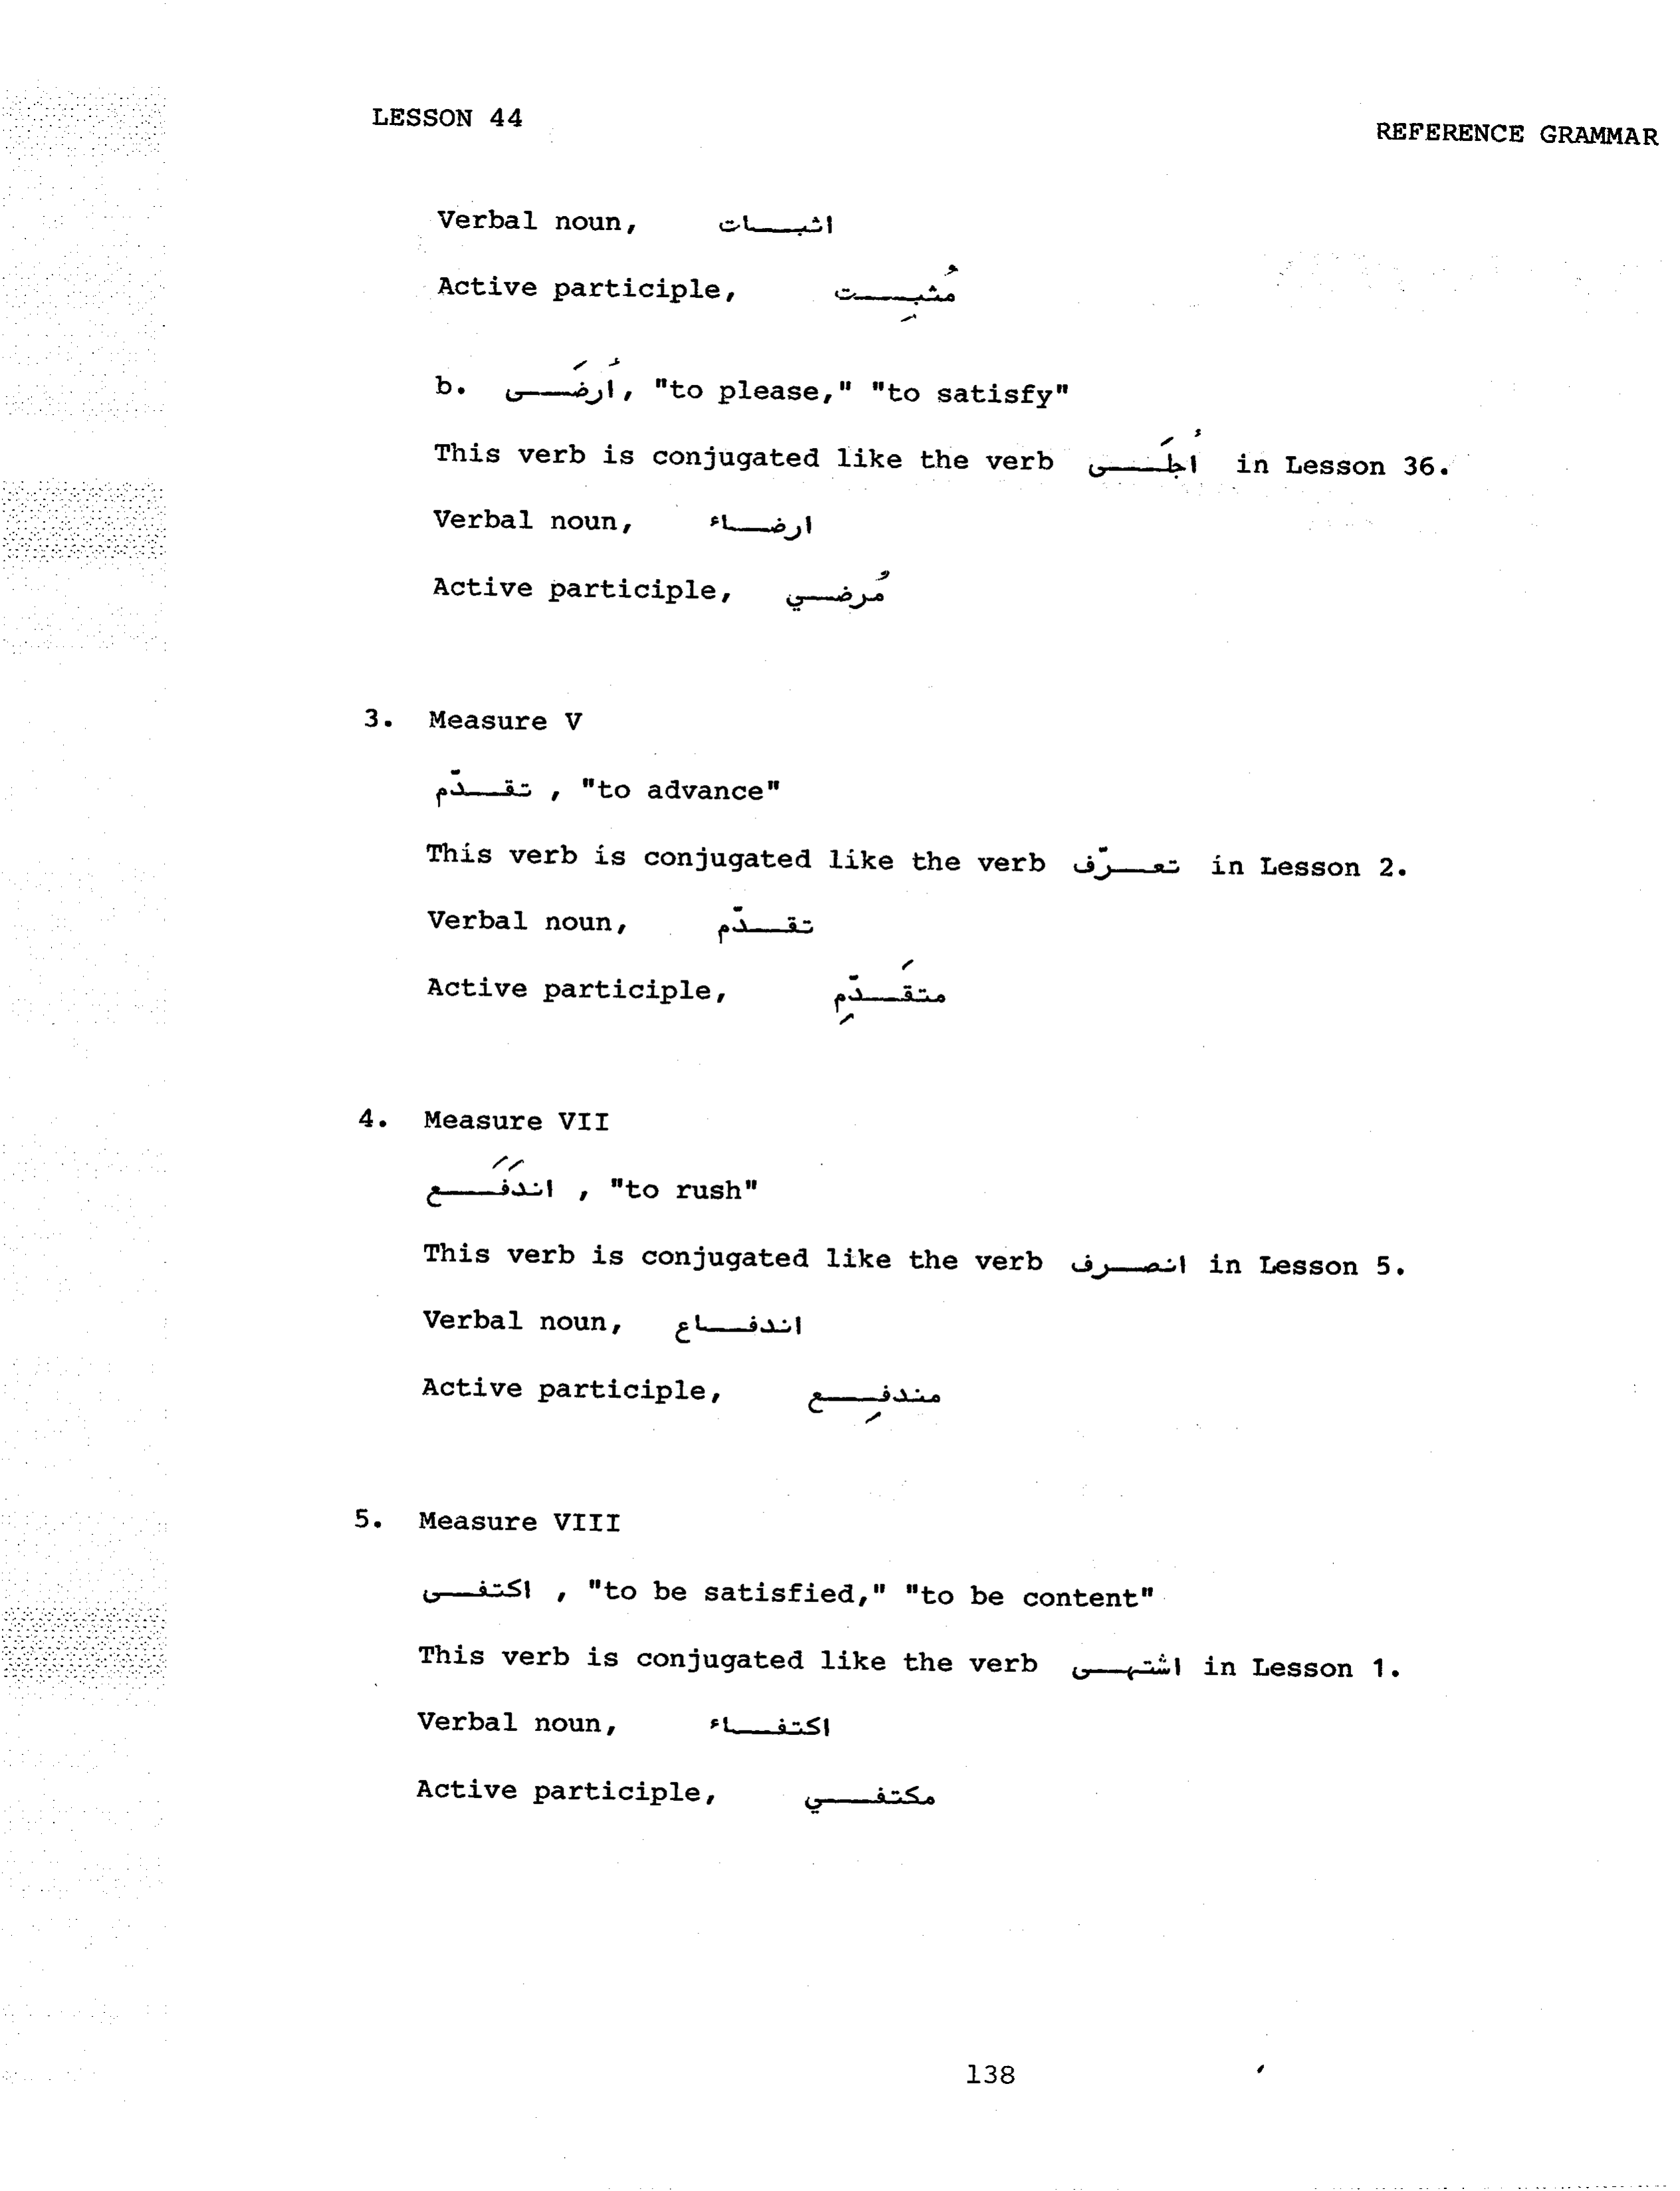 LESSON 44
REFERENCE GRAMMAR
Verbal noun, اثبـــات
Active participle, مُثبِـــت
b. أَرضَـــى, "to please," "to satisfy"
This verb is conjugated like the verb أجلَـــى in Lesson 36.
Verbal noun, ارضـــاء
Active participle, مُرضـــي
3. Measure V
تقـــدّم , "to advance"
This verb is conjugated like the verb تعـــرّف in Lesson 2.
Verbal noun, تقـــدّم
Active participle, متقَـــدِّم
4. Measure VII
اندَفَـــع , "to rush"
This verb is conjugated like the verb انصـــرف in Lesson 5.
Verbal noun, اندفـــاع
Active participle, مندفِـــع
5. Measure VIII
اكتفـــى , "to be satisfied," "to be content"
This verb is conjugated like the verb اشتهـــى in Lesson 1.
Verbal noun, اكتفـــاء
Active participle, مكتفـــي
138